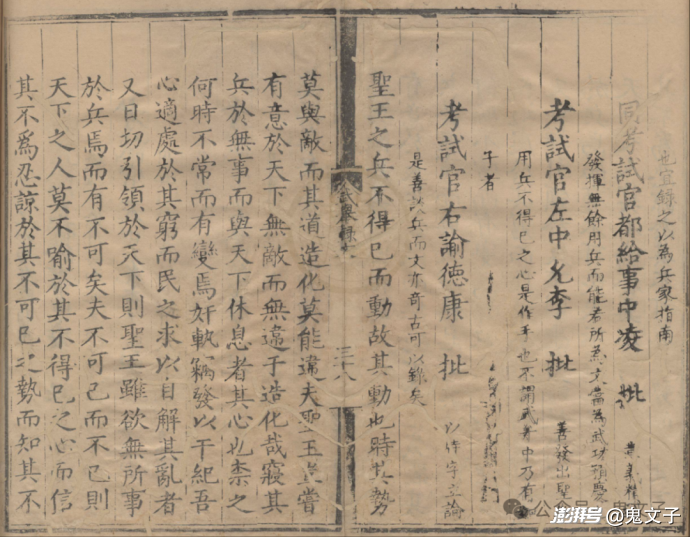 也宜錄之以為兵家指南
同考試官都給事中凌 批
發揮無餘用兵而能者所
考試官左中允李 批 善發出聖
用兵不得已之心是作手也不謂武者中乃有
于者
考試官右諭德康 批
是善談兵而文亦奇古可以錄矣
聖王之兵不得已而動故其動也時其勢
三十八
莫與敵而其道造化莫能違夫聖王豈嘗
有意於天下無敵而無違于造化哉寢其
兵於無事而與天下休息者其心也柰之
何時不常而有變焉奸軌竊發以干紀吾
心適處於其窮而民之求以自解其亂者
又日切引領於天下則聖王雖欲無所事
於兵焉而有不可矣夫不可已而不已則
天下之人莫不喻於其不得已之心而信
其不為忍諒於其不可已之勢而知其不
澎湃号@鬼文子